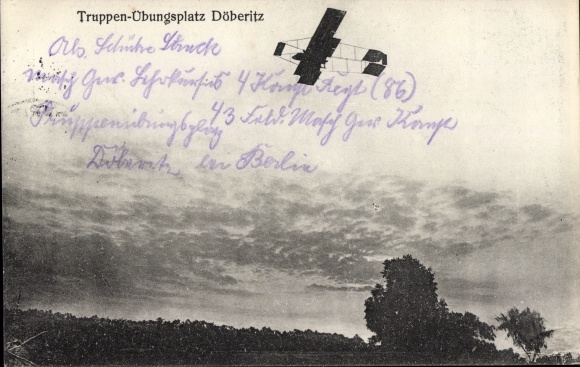 Truppen-Übungsplatz Döberitz
Abs. Schütze
Masch Gew. Lehrkursus 4 Komp Regt (86)
Truppenübungsplatz 43 Feld. Masch Gew Komp
Döberitz bei Berlin